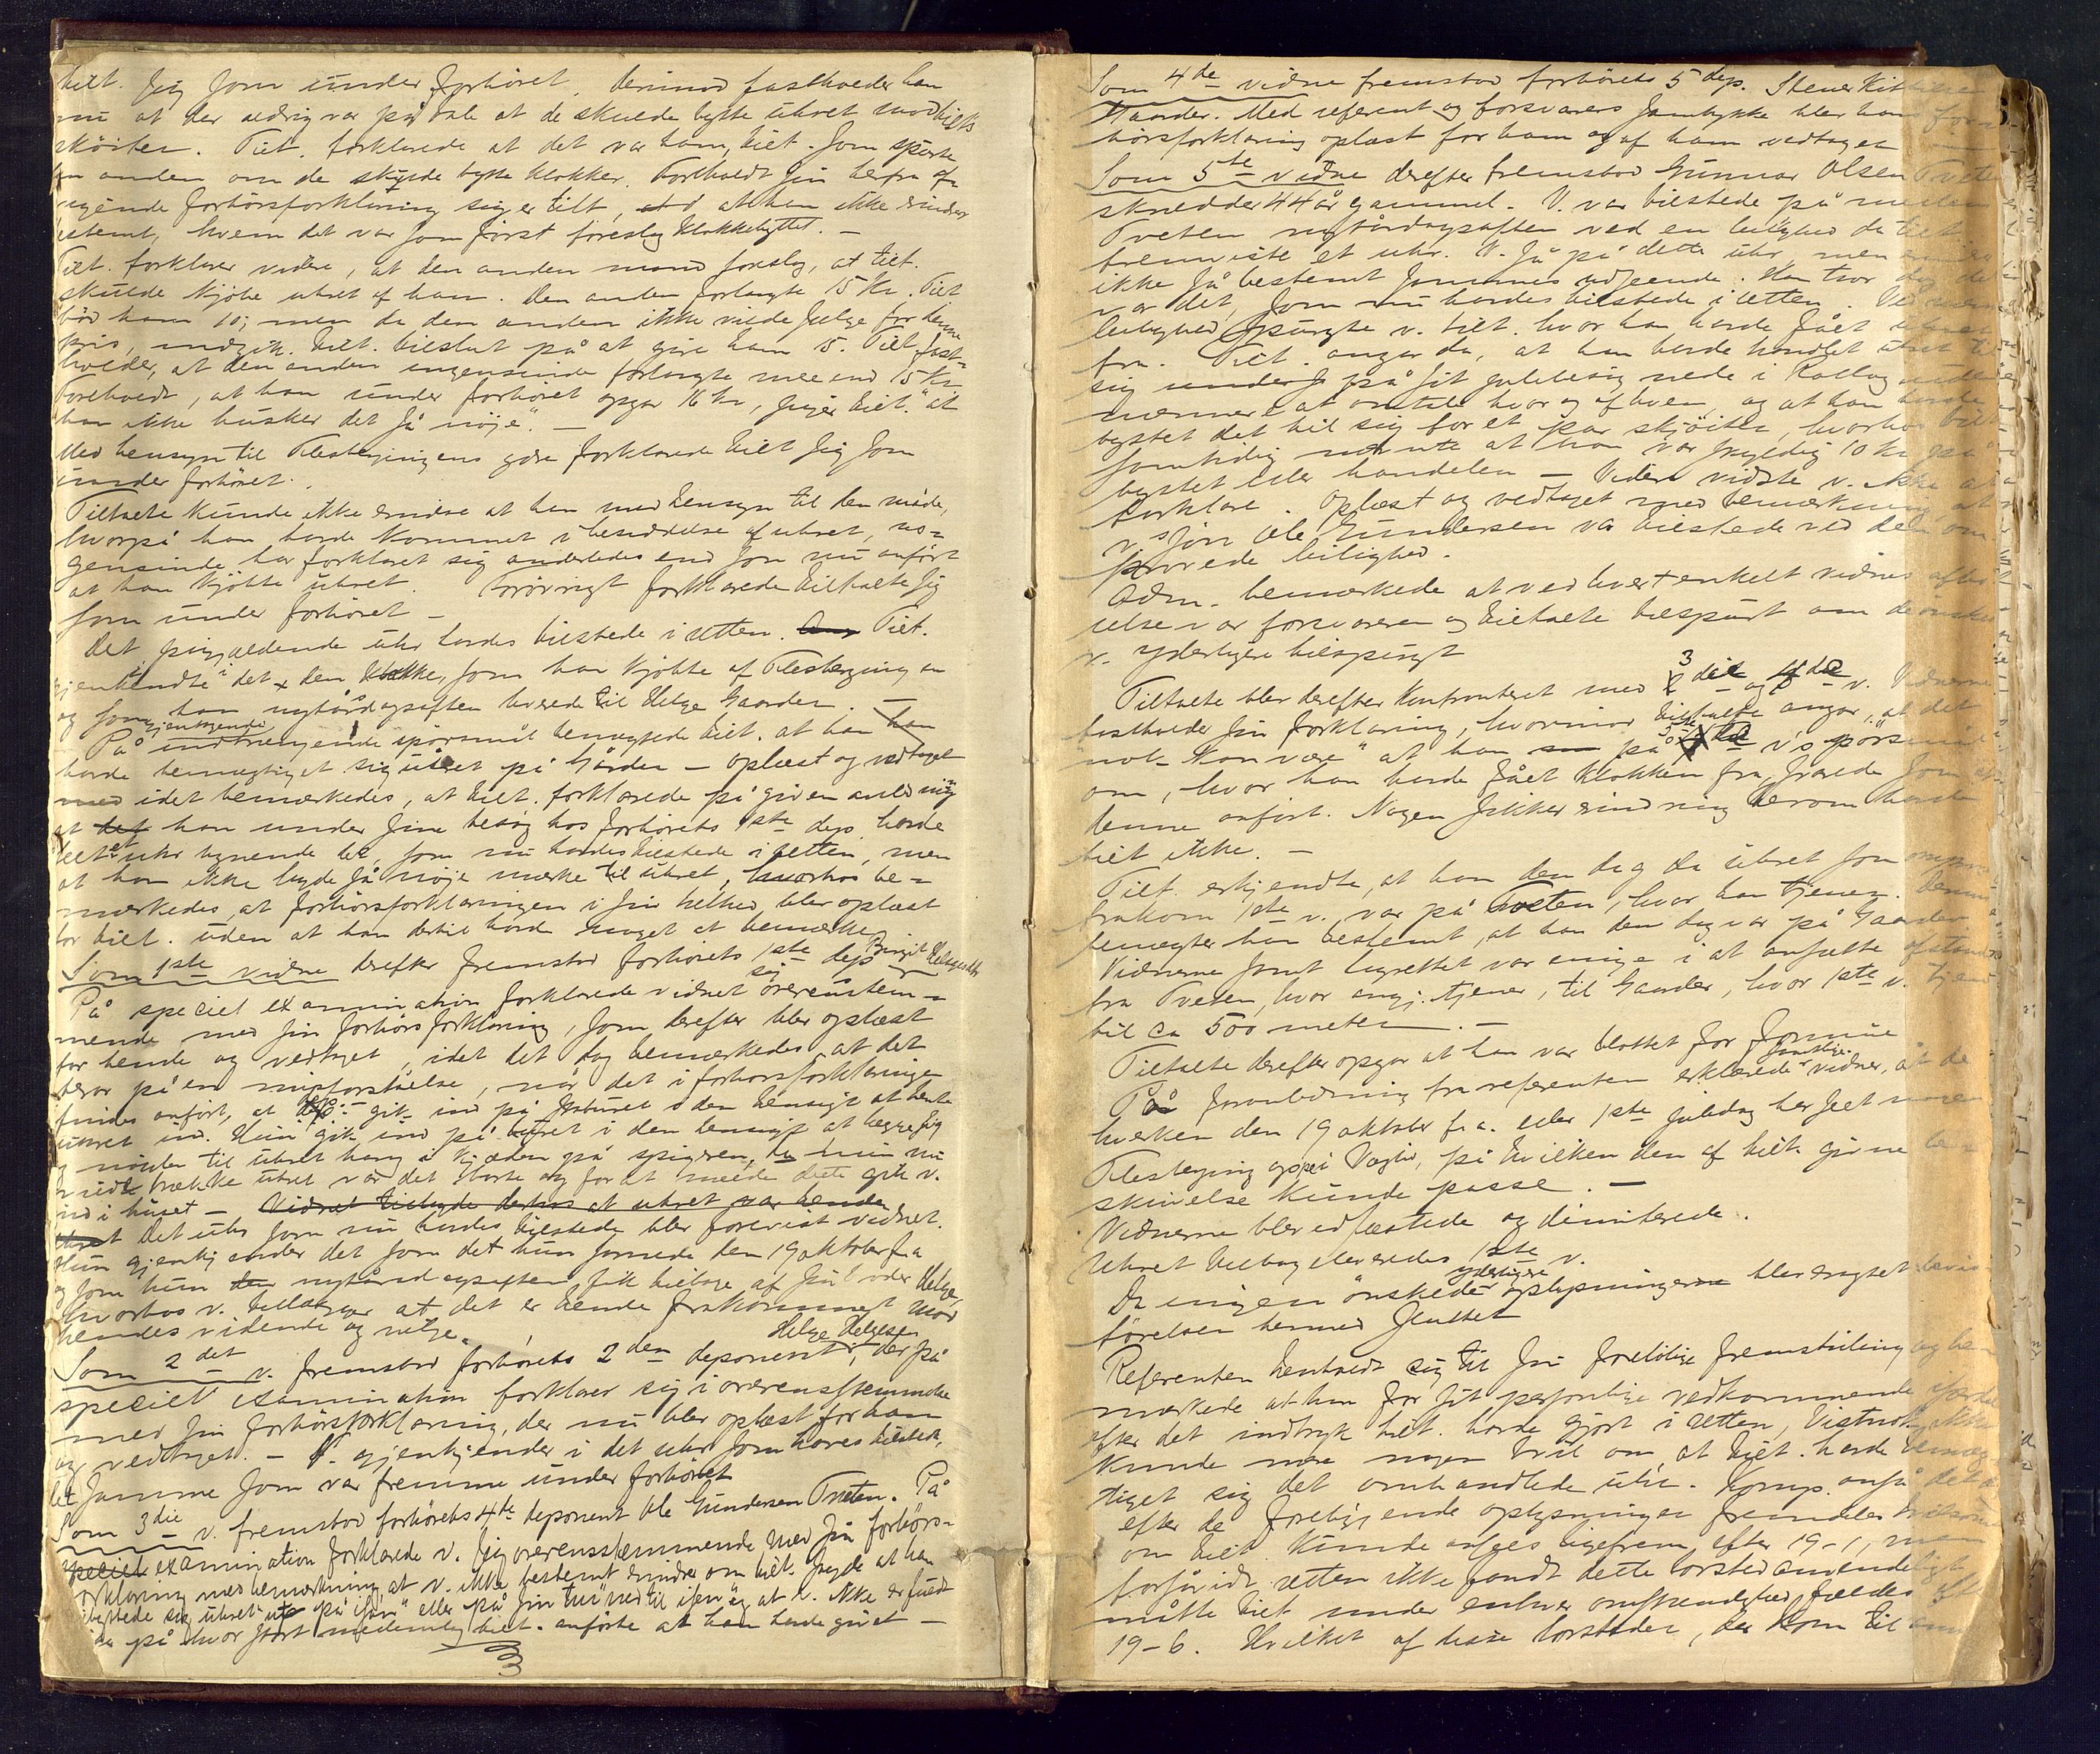 tilt. sig som under forhöret. Derimod fastholder han
nu at der aldrig var på tale at de skulde bytte uhret mod tilts
sköiter. Tilt. forklarede at det var ham, tilt. som spurte
en anden om de skulde bytte klokker. Foreholdt sin herfra af-
vigende forhörsforklaring siger tilt, at han ikke erindrer
bestemt, hvem det var som först foreslog klokkebyttet. —
Tilt. forklarer videre, at den anden mand foreslog, at tilt.
skulde kjöbe uhret af ham. Den anden forlangte 15 Kr. Tilt
böd ham 10; men da den anden ikke vilde sælge for denne
pris, indgik tilt. tilslut på at give ham 15. Tilt. fast-
holder, at den anden ingensinde forlangte mere end 15 Kr
Foreholdt, at han under forhöret opgav 16 kr, siger tilt. "at
han ikke husker det så nöje". —
Med hensyn til Flesbergingens ydre forklarede tilt sig som
under forhöret.
Tiltalte kunde ikke erindre at han med hensyn til den måde,
hvorpå han havde kommet i besiddelse af uhret, no-
gensinde har forklaret sig anderledes end som nu anfört
at han kjöbte uhret. Forövrigt forklarede tiltalte sig
som under forhöret —
Det pågjældende uhr havdes tilstede i retten. Tilt.
gjenkjendte i det den klokke, som han kjöbte af Flesbergingen
og som han nytårsdagsaften leverede til Helge Gaarder. —
På gjentagende spörsmål benegtede tilt. at han
havde bemægtiget sig uhret på Gården — Oplæst og vedtaget
idet bemærkedes, at tilt. forklarede på given anledning
at han under sine besög hos forhörets 1ste dep. havde
seet et uhr lignende det, som nu havdes tilstede i retten, men
at han ikke lagde så nöje mærke til uhret, hvorhos be-
mærkedes, at forhörsforklaringen i sin helhed blev oplæst
for tilt. uden at han dertil havde noget at bemærke
Som 1ste vidne derefter fremstod forhörets 1ste dep Birgit Helgesdtr
På speciel examination forklarede vidnet sig overenstem-
mende med sin forhörsforklaring, som derefter blev oplæst
for hende og vedtaget, idet det dog bemærkedes at det
beror på en misforståelse, når det i forhörsforklaringen
findes anfört, at dep. gik ind på buret i den hensigt at hente
uhret ind. Hun gik ind på buret i den hensigt at lægge sig
ind i huset —
Det uhr som nu havdes tilstede blev forevist vidnet.
Hun gjenkjender det som det hun savnede den 19 oktober f.a
og som hun nytårsdagsaften fik tilbage af sin broder Helge,
hvorhos v. tillægger at det er hende frakommet mod
hendes vidende og vilje.
Som 2det v. fremstod forhörets 2den deponent, Helge Helgesen der på
speciel examination forklarer sig i overensstemmelse
med sin forhörsforklaring, der nu blev oplæst for ham
og vedtaget. — V. gjenkjender i det uhr som haves tilstede,
det samme som var fremme under forhöret
Som 3die v. fremstod forhörets 4de deponent Ole Gundersen Tveten. På
speciel examination forklarede v. sig overensstemmende med sin forhörs-
forklaring med bemærkning at v. ikke bestemt erindrer om tilt. sagde at han
byttede sig uhret på eller på og at v. ikke er fuldt
på hvor stort mellemlag tilt. anförte at han havde givet —
Som 4de vidne fremstod forhörets 5 dep. Stener Kittilsen
Gaarder. Med referent og forsvarers samtykke blev hans for-
hörsforklaring oplæst for ham og af ham vedtaget
Som 5te vidne derefter fremstod Gunnar Olsen Tveten
skredder 44 år gammel. V. var tilstede på
Tveten nytårdagsaften ved en leilighed da tilt.
fremviste et uhr. V. så på dette uhr, men
ikke så bestemt sammes udseende. Han tror dog det
var det, som nu havdes tilstede i retten. Ved
leilighed spurgte v. tilt. hvor han havde fået uhret
fra. Tilt. angav da, at han havde handlet uhret til
sig på sit julebesög nede i Rollag uden
nærmere at omtale hvor og af hvem, og at han havde
byttet det til sig for et par skjöiter, hvorhos tilt
samtidig nævnte at han var skyldig 10 kr på
byttet eller handelen — Videre vidste v. ikke at
forklare. Oplæst og vedtaget med bemærkning at
v's sön Ole Gundersen var tilstede ved den om-
provede leilighed.
Adm. bemærkede at ved hvert enkelt vidnes afhö-
relse var forsvareren og tiltalte tilspurgt om de önsket
v. yderligere tilspurgt
Tiltalte blev derefter konfronteret med 3die og 4de v. Vidnerne
fastholder sin forklaring, hvorimod tiltalte angav, at det
"nok kan være" at han på 5te v's spörsmål
om, hvor han havde fået klokken fra, svarede som af
denne anfört. Nogen sikker erindring herom havde
tilt ikke. —
Tilt. erkjendte, at han den dag da uhret
frakom 1ste v., var på Tveten, hvor han tjener. Derimod
benegter han bestemt, at han den dag var på Gaarder
Vidnerne samt lagrettet var enige i at ansætte afstanden
fra Tveten, hvor angj. tjener, til Gaarder, hvor 1ste v. tjener
til ca 500 meter. —
Tiltalte derefter opgav at han var blottet for formue
På foranledning fra referenten erklærede samtlige vidner, at de
hverken den 19 oktober f.a. eller 1ste juledag har seet nogen
Flesberging oppe i Veglid, på hvilken den af tilt. givne be-
skrivelse kunde passe. —
Vidnerne blev edfæstede og dimitterede.
Uhret tilbageleveredes 1ste v.
Da ingen önskede yderligere oplysninger blev eragtet bevis-
förelsen hermed sluttet
Referenten henholdt sig til sin foreløbige fremstilling og be-
mærkede at han for sit personlige vedkommende
efter det indtryk tilt. havde gjort i retten, vistnok ikke
kunde nære nogen tvil om, at tilt. havde bemæg-
tiget sig det omhandlede uhr. Komp. anså det
efter de foreliggende oplysninger fremdeles tvilsomt
om tilt kunde ligefrem, efter 19-1, men
forsåvidt retten ikke fandt dette lovsted anvendeligt
måtte tilt under enhver omstændighed fældes efter
19-6. Hvilket af disse lovsteder, der kom til